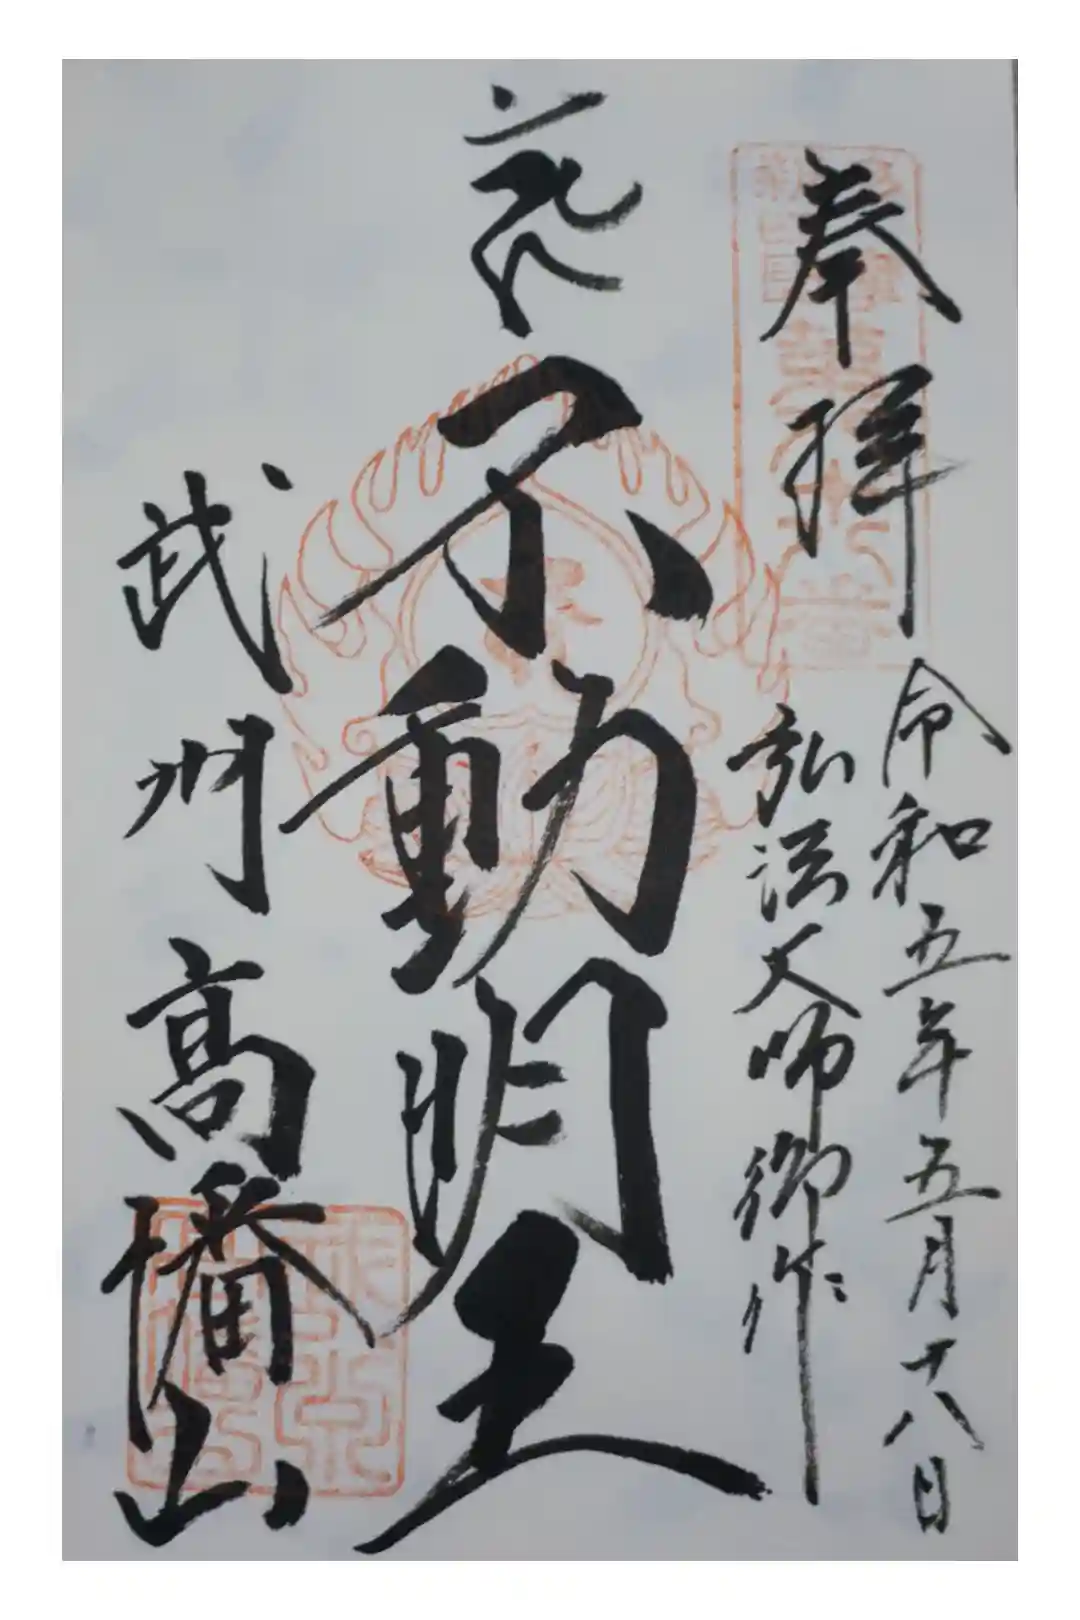 奉拝
令和五年五月十八日
弘法大師御作
不動明王
武州
高幡山